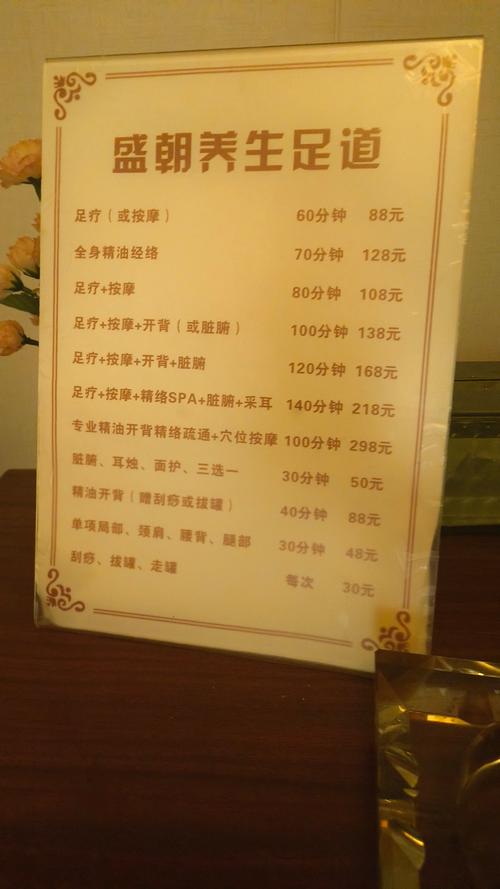 盛朝养生足道
足疗（或按摩） 60分钟 88元
全身精油经络 70分钟 128元
足疗+按摩 80分钟 108元
足疗+按摩+开背（或脏腑） 100分钟 138元
足疗+按摩+开背+脏腑 120分钟 168元
足疗+按摩+精络SPA+脏腑+采耳 140分钟 218元
专业精油开背精络疏通+穴位按摩 100分钟 298元
脏腑、耳烛、面护、三选一 30分钟 50元
精油开背（赠刮痧或拔罐） 40分钟 88元
单项局部、颈肩、腰背、腿部 30分钟 48元
刮痧、拔罐、走罐 每次 30元